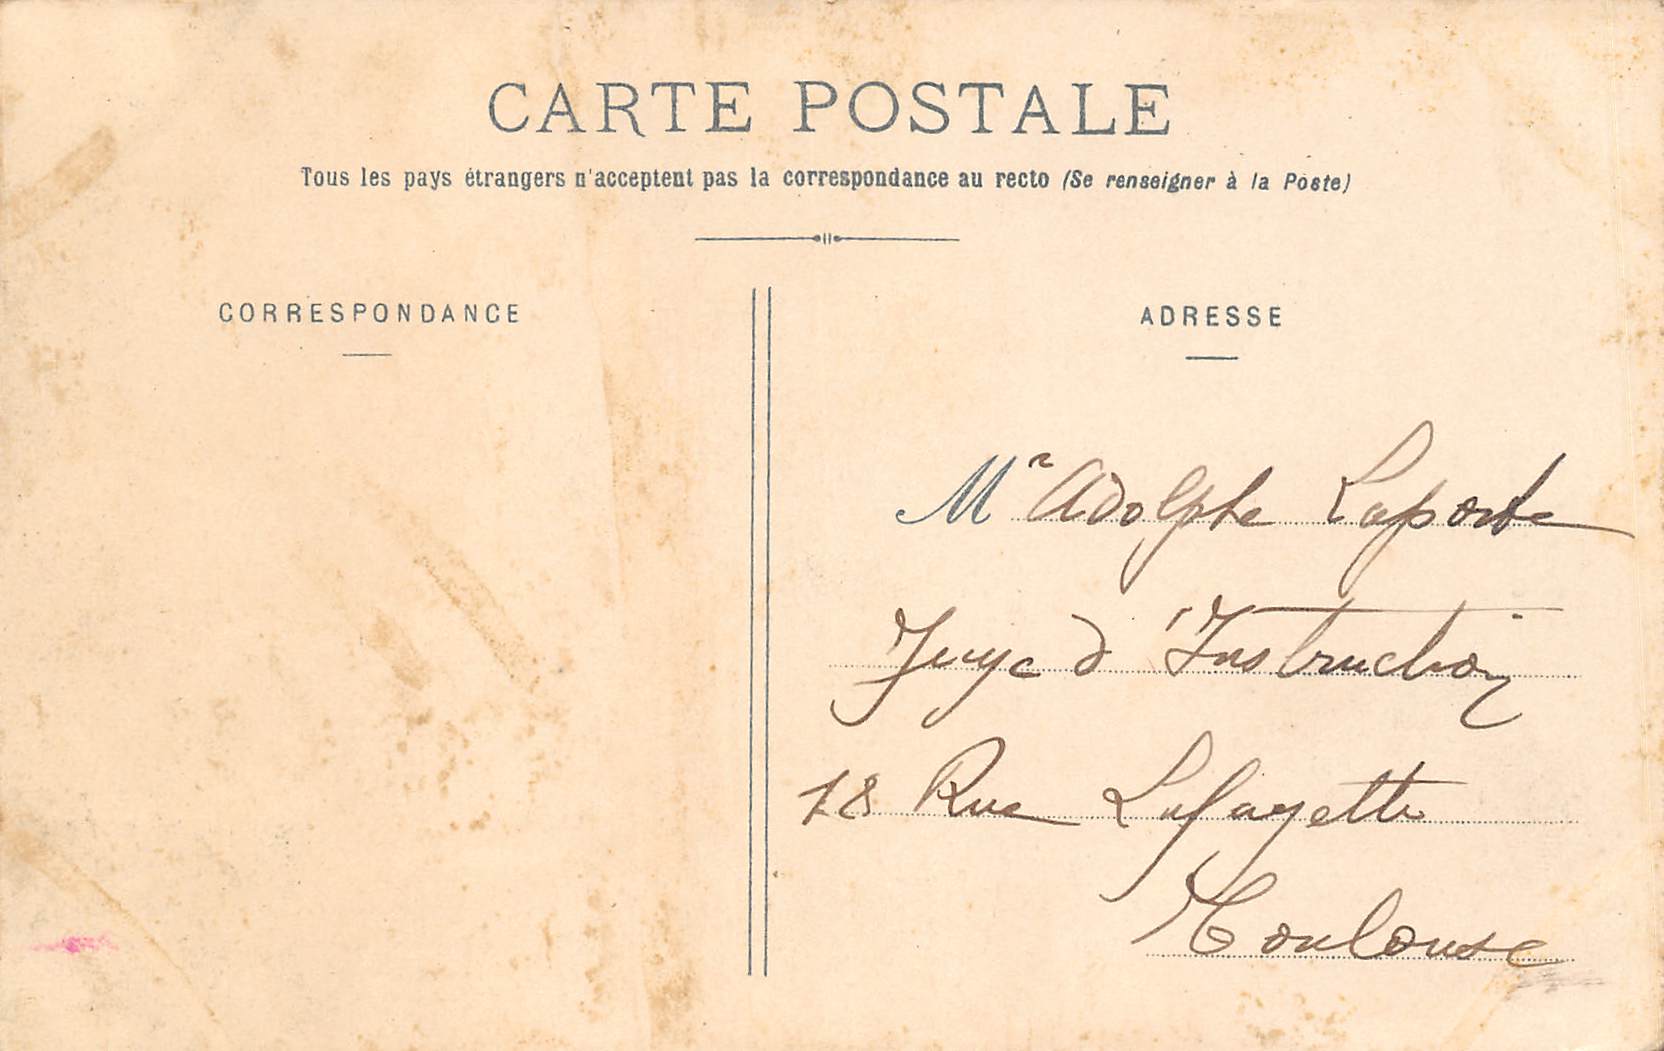 CARTE POSTALE
Tous les pays étrangers n'acceptent pas la correspondance au recto (Se renseigner à la Poste)
CORRESPONDANCE
ADRESSE
Mr Adolphe Laporte
Juge d'Instruction
18 Rue Lafayette
Toulouse